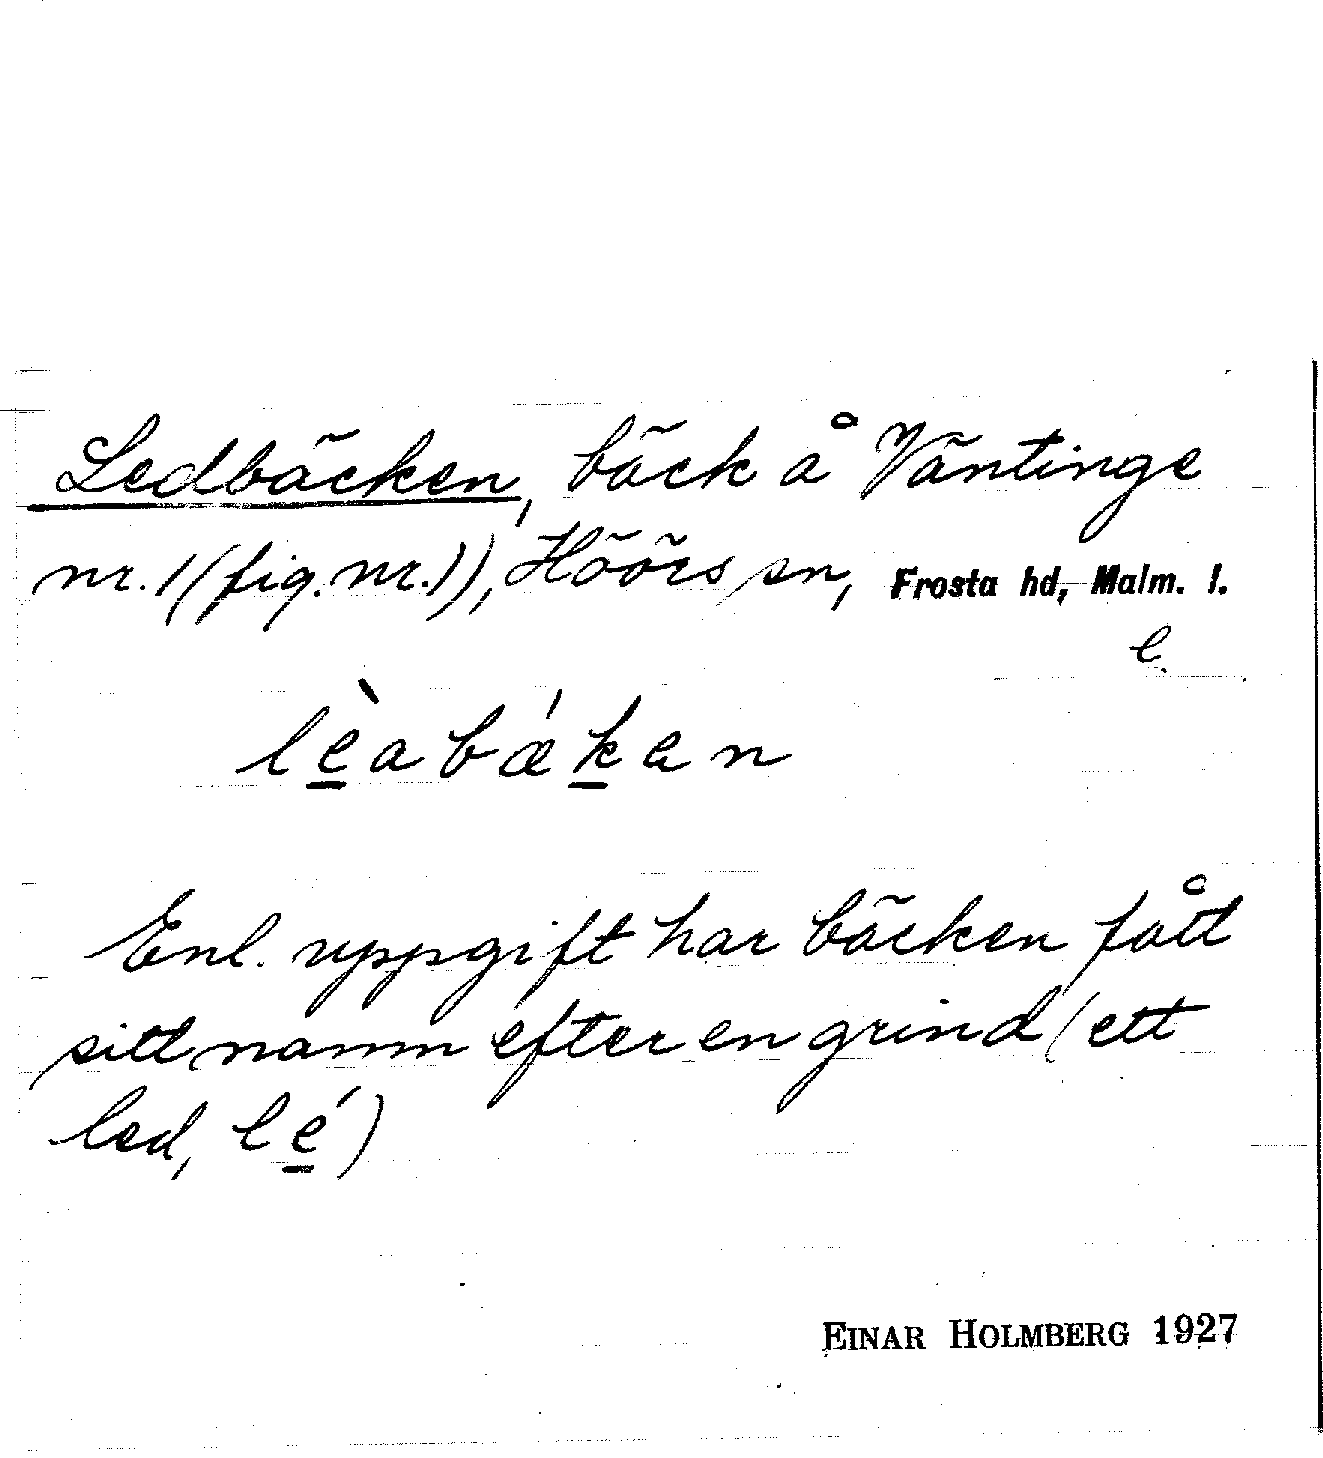 Ledbäcken, bäck å Väntinge
nr. 1 (fig. nr. 1), Höörs sn, Frosta hd, Malm. l.
e
lèabǽken
Enl. uppgift har bäcken fått
sitt namn efter en grind (ett
led, lé)
EINAR HOLMBERG 1927